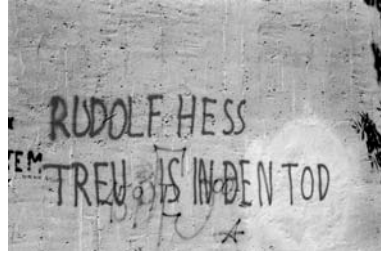 RUDOLF HESS
TEM
TREU IS IN DEN TOD